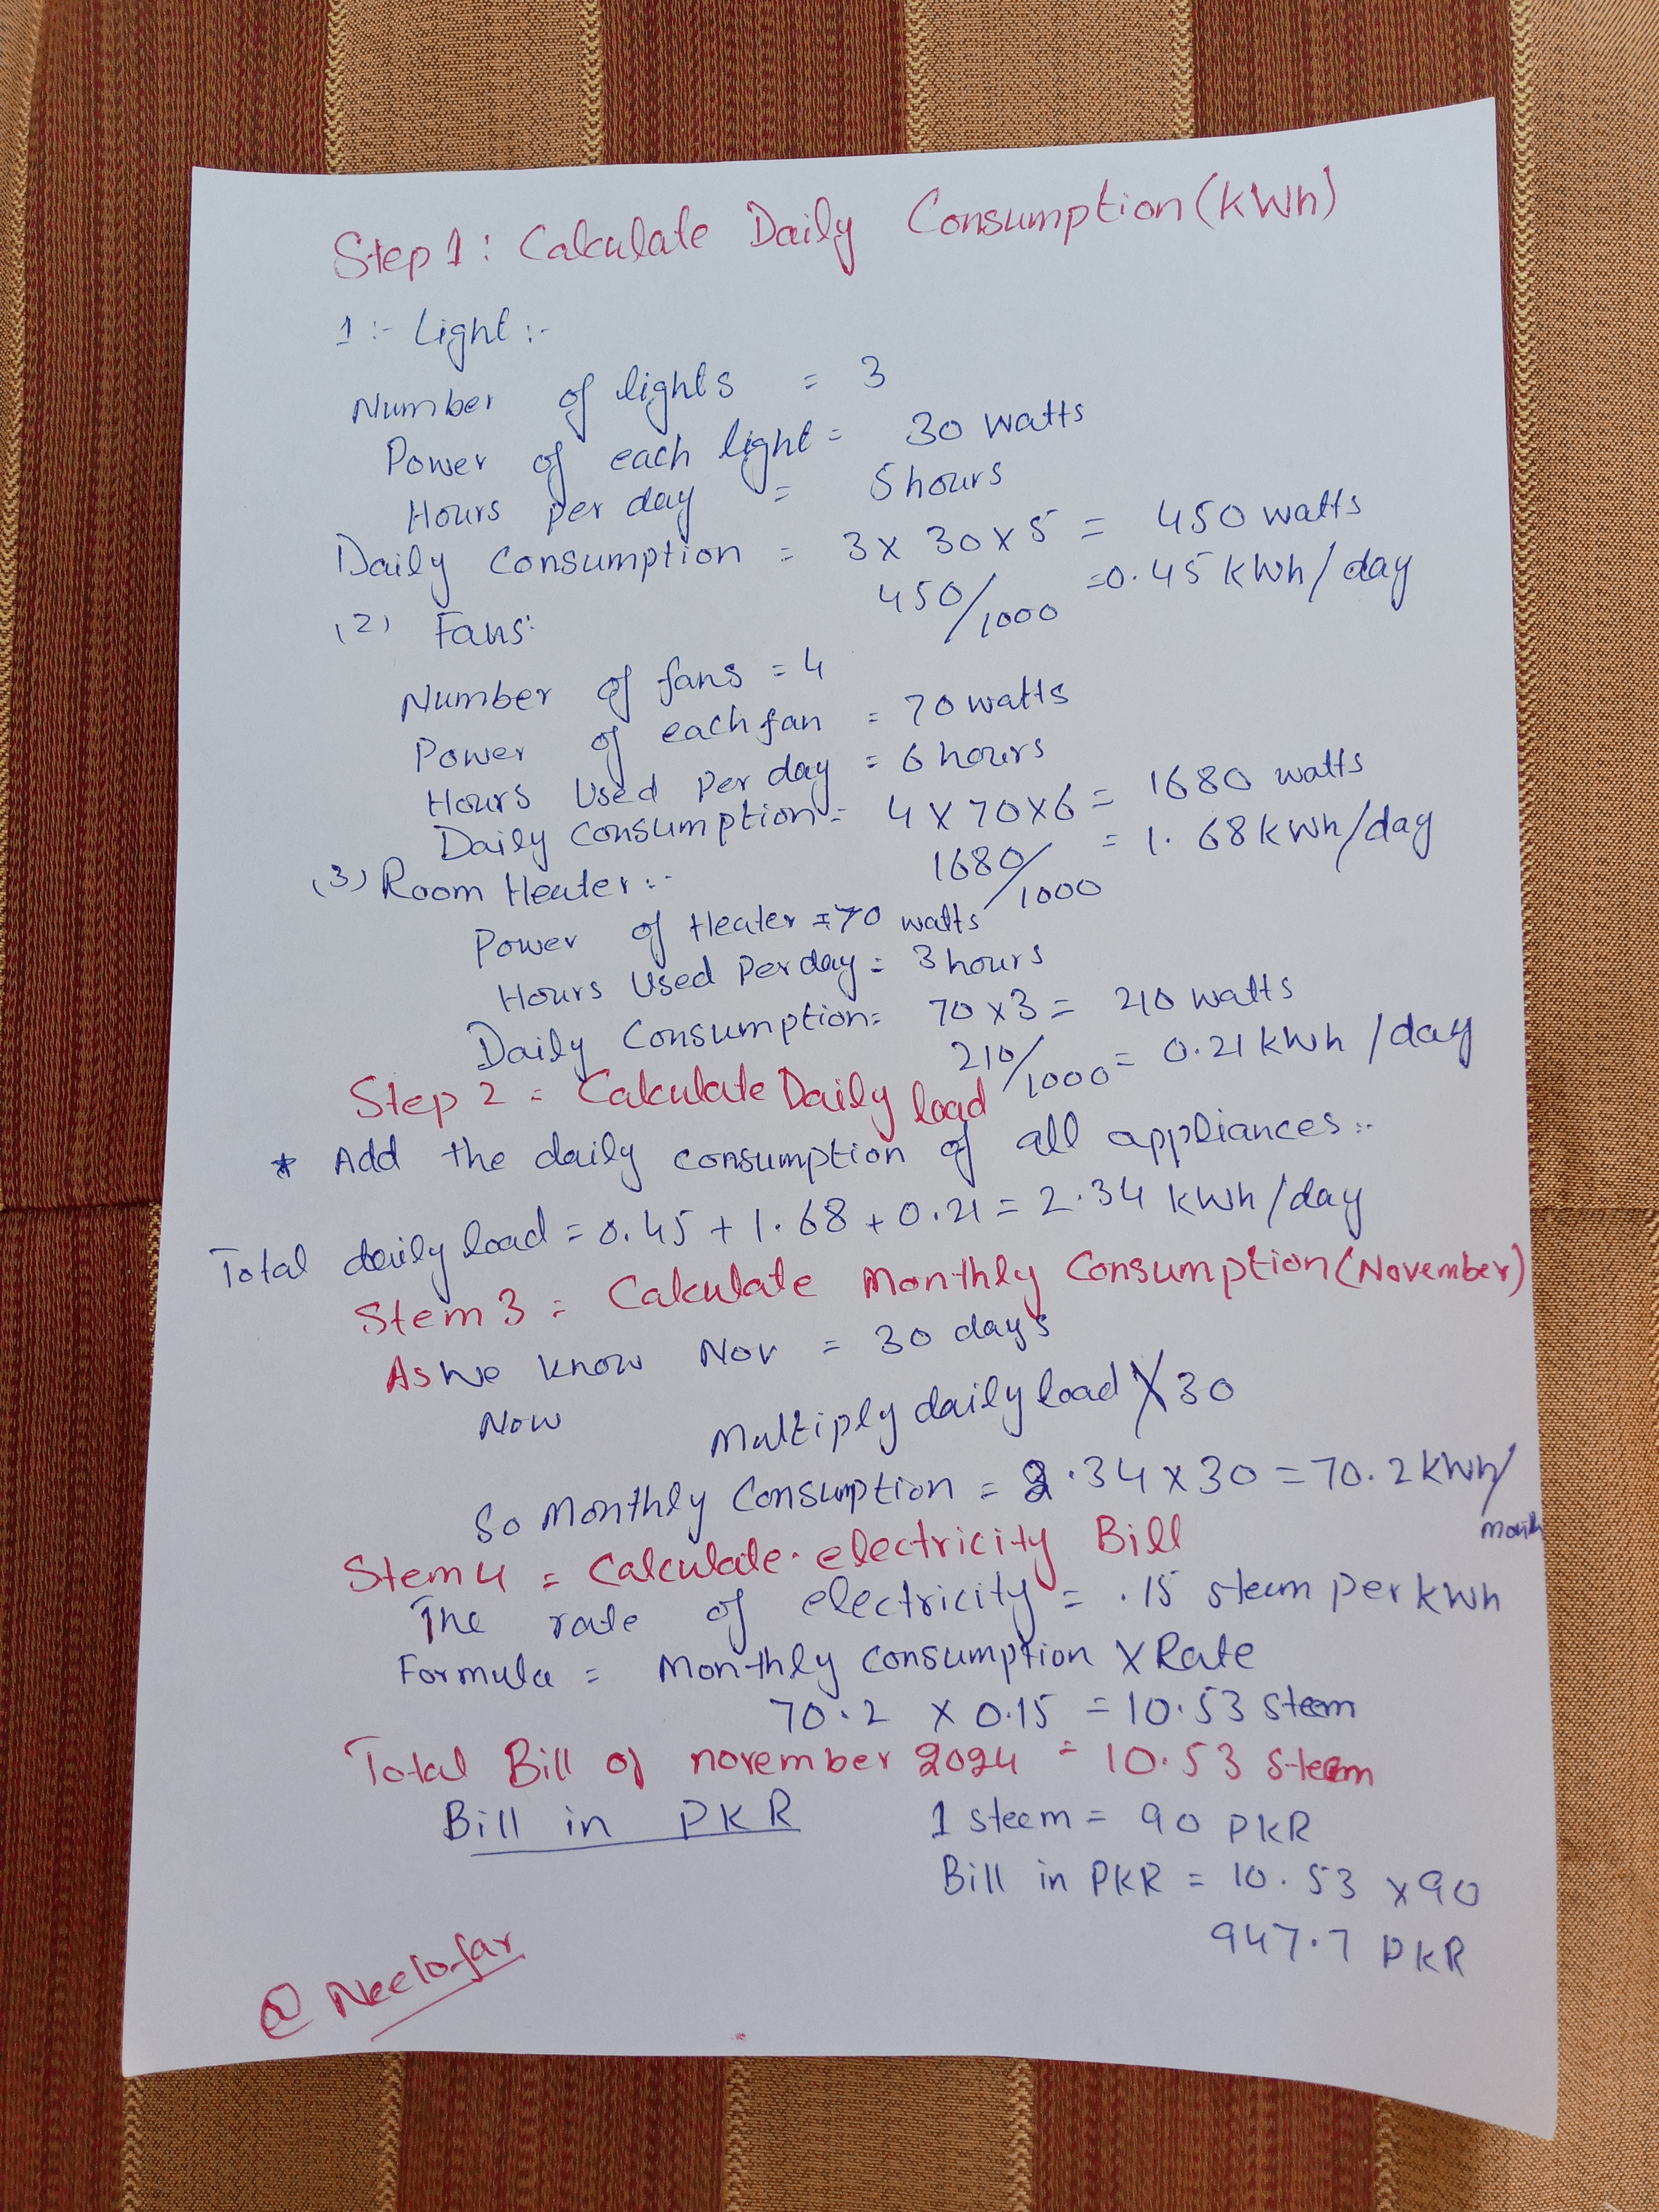 Step 1: Calculate Daily Consumption (kWh)
1 :- Light :-
Number of lights = 3
Power of each light = 30 watts
Hours per day = 5 hours
Daily Consumption = 3 x 30 x 5 = 450 watts
450/1000 = 0.45 kWh/day
(2) Fans:
Number of fans = 4
Power of each fan = 70 watts
Hours Used Per day = 6 hours
Daily Consumption = 4 x 70 x 6 = 1680 watts
1680/1000 = 1.68 kWh/day
(3) Room Heater :-
Power of Heater = 70 watts
Hours Used Per day = 3 hours
Daily Consumption = 70 x 3 = 210 watts
210/1000 = 0.21 kWh /day
Step 2 = Calculate Daily load
* Add the daily consumption of all appliances :-
Total daily load = 0.45 + 1.68 + 0.21 = 2.34 kWh/day
Stem 3 = Calculate Monthly Consumption (November)
As we know Nov = 30 days
Now Multiply daily load X 30
So Monthly Consumption = 2.34 x 30 = 70.2 kWh/
month
Stem 4 = Calculate electricity Bill
The rate of electricity = .15 steem per kWh
Formula = Monthly Consumption X Rate
70.2 x 0.15 = 10.53 steem
Total Bill of november 2024 = 10.53 Steem
Bill in PKR 1 steem = 90 PKR
Bill in PKR = 10.53 x 90
947.7 PKR
@ Neelofar